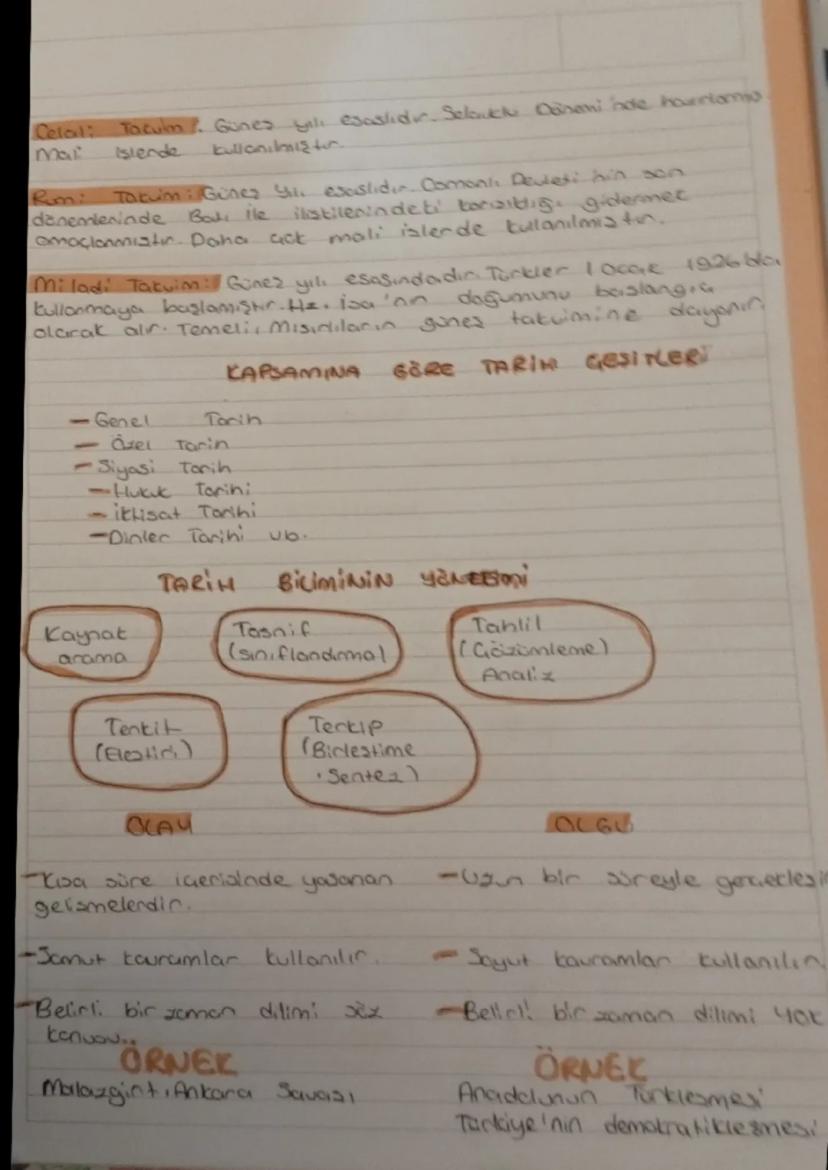 Celali Takvim: Güneş yılı esaslıdır. Selçuklu Dönemi'nde hazırlanmış
Mali işlerde kullanılmıştır.
Rumi Takvim: Güneş yılı esaslıdır. Osmanlı Devleti'nin son
dönemlerinde Batı ile ilişkilerindeki karışıklığı gidermek
amaçlanmıştır. Daha çok mali işlerde kullanılmıştır.
Miladi Takvim: Güneş yılı esasındadır. Türkler 1 Ocak 1926'da
kullanmaya başlamıştır. Hz. İsa'nın doğumunu başlangıç
olarak alır. Temeli, Mısırlıların güneş takvimine dayanır.
KAPSAMINA GÖRE TARİH ÇEŞİTLERİ
- Genel Tarih
- Özel Tarih
- Siyasi Tarih
- Hukuk Tarihi
- İktisat Tarihi
- Dinler Tarihi vb.
TARİH BİLİMİNİN YÖNTEMİ
Kaynak Tasnif Tahlil
arama (sınıflandırma) (Çözümleme)
Analiz
Tenkit Terkip
(Eleştiri) (Birleştime
Sentez)
OLAY OLGU
- Kısa süre içerisinde yaşanan - Uzun bir süreyle gerçekleşir
gelişmelerdir.
- Somut kavramlar kullanılır. - Soyut kavramlar kullanılır
- Belirli bir zaman dilimi söz - Belirli bir zaman dilimi yok
konusu..
ÖRNEK ÖRNEK
Malazgirt, Ankara Savaşı Anadolunun Türkleşmesi
Türkiye'nin demokratikleşmesi